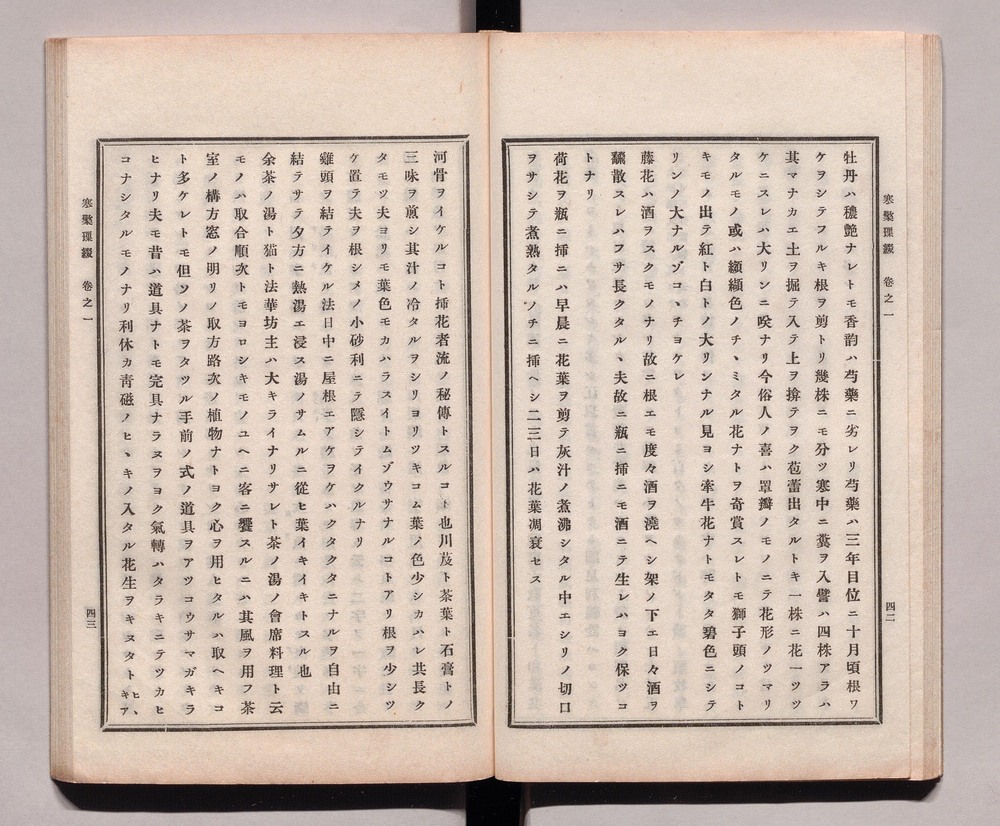 寒檠璅綴 卷之一
四二
牡丹ハ穠艷ナレトモ香韵ハ芍藥ニ劣レリ芍藥ハ三年目位ニ十月頃根ワ
ケヲシテフルキ根ヲ剪トリ幾株ニモ分ツ寒中ニ糞ヲ入譬ハ四株アラハ
其マナカエ土ヲ掘テ入テ上ヲ揜テヲク苞蕾出タルトキ一株ニ花一ツツ
ケニスレハ大リンニ咲ナリ今俗人ノ喜ハ單瓣ノモノニテ花形ノツマリ
タルモノ或ハ纐纈色ノチヽミタル花ナトヲ奇賞スレトモ獅子頭ノコト
キモノ出テ紅ト白トノ大リンナル見ヨシ牽牛花ナトモタタ碧色ニシテ
リンノ大ナルゾコヽチヨケレ
藤花ハ酒ヲスクモノナリ故ニ根エモ度々酒ヲ澆ヘシ架ノ下エ日々酒ヲ
飜散スレハフサ長クタルヽ夫故ニ瓶ニ挿ニモ酒ニテ生レハヨク保ツコ
トナリ
荷花ヲ瓶ニ挿ニハ早晨ニ花葉ヲ剪テ灰汁ノ煮沸シタル中エシリノ切口
ヲサシテ煮熟タルノチニ挿ヘシ二三日ハ花葉凋衰セス
河骨ヲイケルコト挿花者流ノ秘傳トスルコト也川芨ト茶葉ト石膏トノ
三味ヲ煎シ其汁ノ冷タルヲシリヨリツキコム葉ノ色少シカハレ共長ク
タモツ夫ヨリモ葉色モカハラスイトムゾウサナルコトアリ根ヲ少シツ
ケ置テ夫ヲ根シメノ小砂利ニテ隱シテイクルナリ
雞頭ヲ結テイケル法日中ニ屋根エアケヲケハクタクタニナルヲ自由ニ
結テサテ夕方ニ熱湯エ浸ス湯ノサムルニ從ヒ葉イキイキトスル也
余茶ノ湯ト猫ト法華坊主ハ大キライナリサレト茶ノ湯ノ會席料理ト云
モノハ取合順次トモヨロシキモノユヘニ客ニ饗スルニハ其風ヲ用フ茶
室ノ構方窓ノ明リノ取方路次ノ植物ナトヨク心ヲ用ヒタルハ取ヘキコ
ト多ケレトモ但ソノ茶ヲタツル手前ノ式ノ道具ヲアツコウサマガキラ
ヒナリ夫モ昔ハ道具ナトモ完具ナラヌヲヨク氣轉ハタラキニテツカヒ
コナシタルモノナリ利休カ靑磁ノヒヽキノ入タル花生ヲキスタトヒヽキア
寒檠璅綴 卷之一
四三